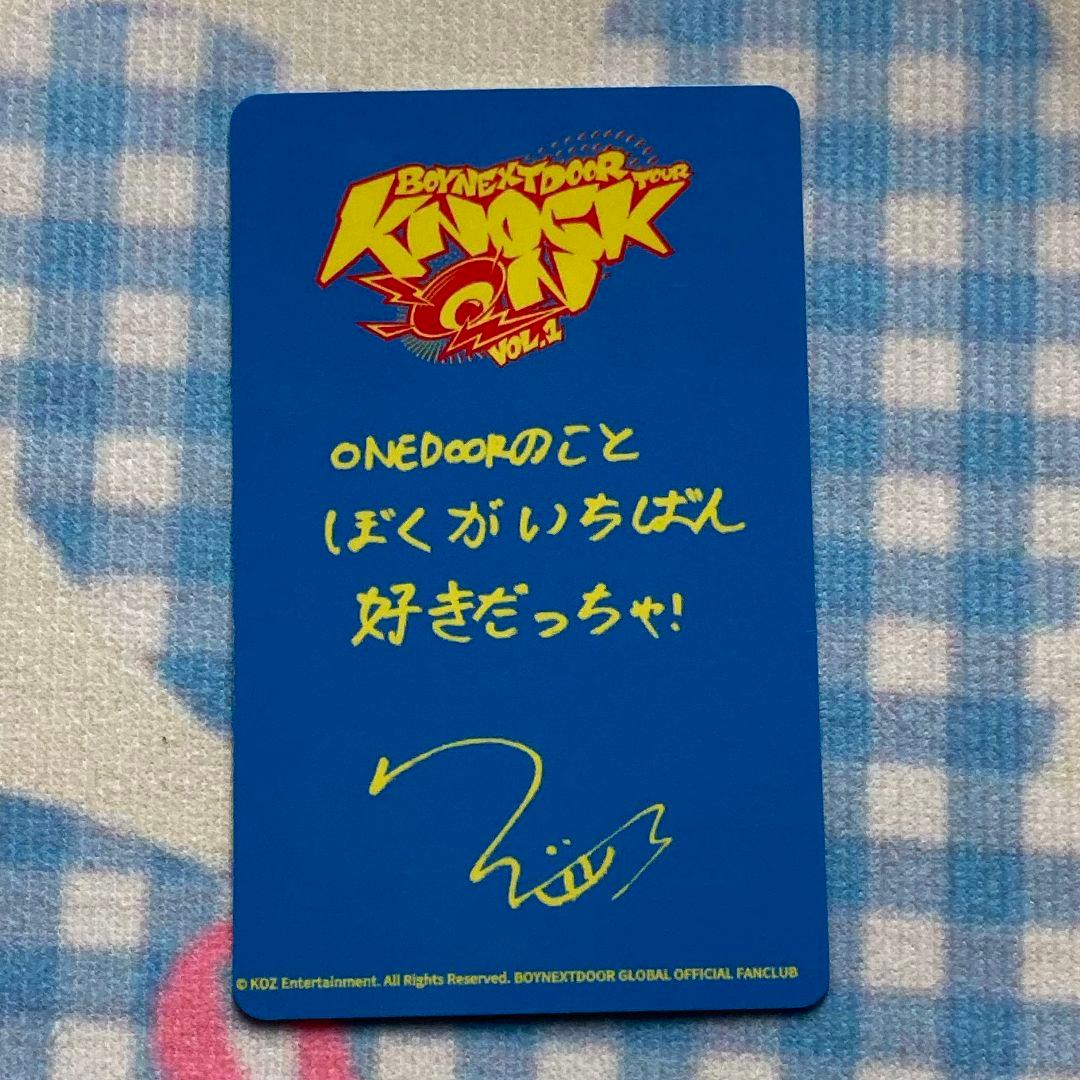 BOYNEXTDOOR TOUR
KNOCK
ON
VOL.1
ONEDOORのこと
ぼくがいちばん
好きだっちゃ!
© KOZ Entertainment. All Rights Reserved. BOYNEXTDOOR GLOBAL OFFICIAL FANCLUB